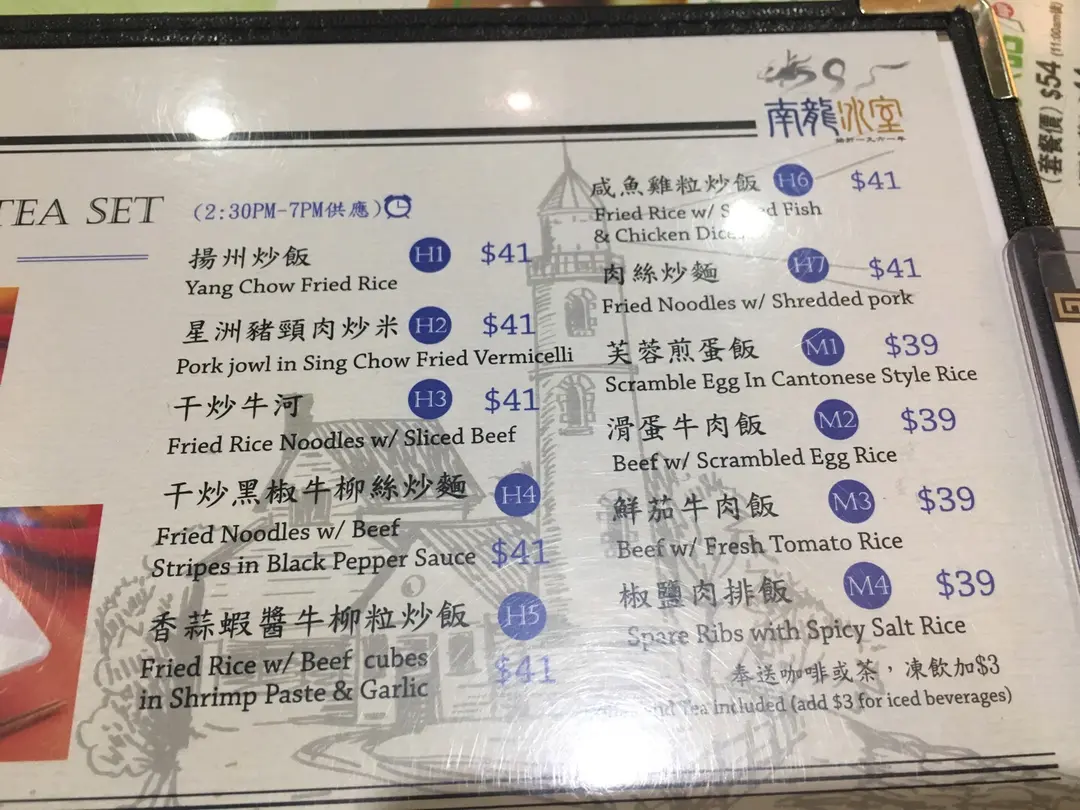 南龍冰室
TEA SET (2:30PM-7PM供應)
揚州炒飯 H1 $41
Yang Chow Fried Rice
星洲豬頸肉炒米 H2 $41
Pork jowl in Sing Chow Fried Vermicelli
干炒牛河 H3 $41
Fried Rice Noodles w/ Sliced Beef
干炒黑椒牛柳絲炒麵 H4
Fried Noodles w/ Beef
Stripes in Black Pepper Sauce $41
香蒜蝦醬牛柳粒炒飯 H5
Fried Rice w/ Beef cubes $41
in Shrimp Paste & Garlic
咸魚雞粒炒飯 H6 $41
Fried Rice w/ Fish
& Chicken
肉絲炒麵 H7 $41
Fried Noodles w/ Shredded pork
芙蓉煎蛋飯 M1 $39
Scramble Egg In Cantonese Style Rice
滑蛋牛肉飯 M2 $39
Beef w/ Scrambled Egg Rice
鮮茄牛肉飯 M3 $39
Beef w/ Fresh Tomato Rice
椒鹽肉排飯 M4 $39
Spare Ribs with Spicy Salt Rice
奉送咖啡或茶，凍飲加$3
Tea included (add $3 for iced beverages)
(套餐價) $54 (11:00am後)